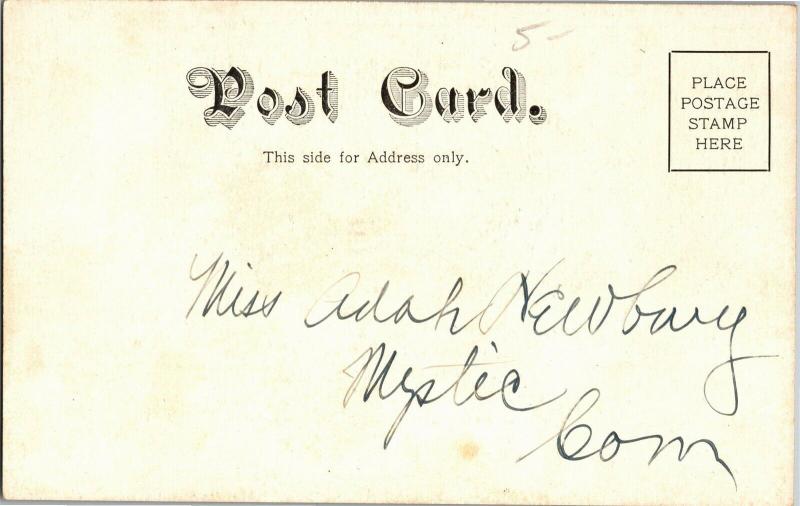 5-
Post Card.
PLACE
POSTAGE
STAMP
HERE
This side for Address only.
Miss Adah Newbury
Mystic
Conn